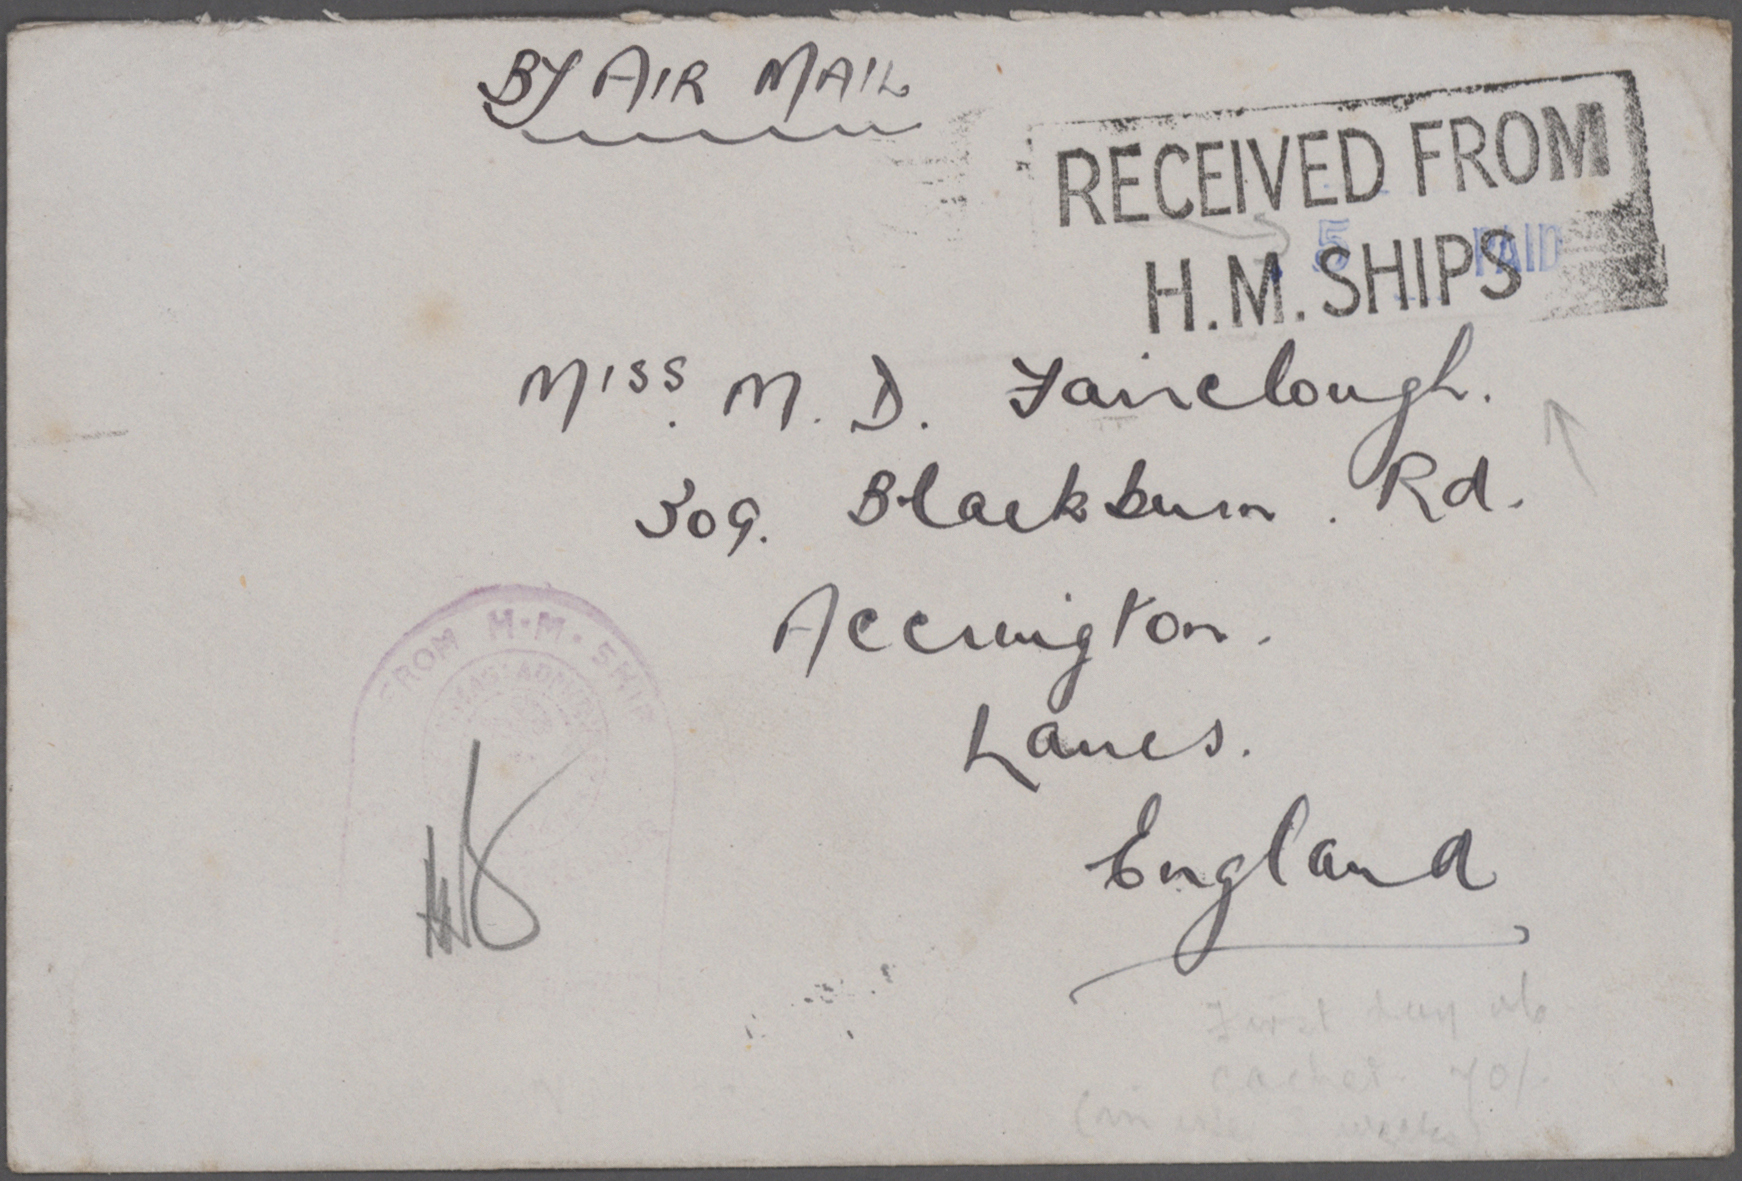 BY AIR MAIL
RECEIVED FROM
5 PAID
H.M. SHIPS
Miss. M. D. Fairclough.
309. Blackburn. Rd.
Accrington.
Lancs.
England
FROM H.M. SHIP
First day
cachet. 70/-
(in use weeks)